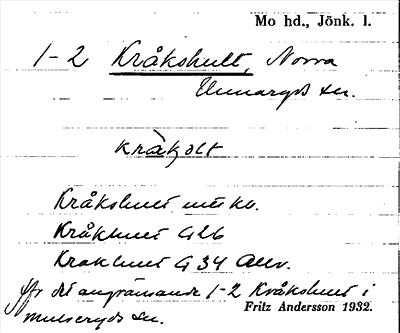 Mo hd., Jönk. l.
1-2 Kråkshult, Norra
Unnaryds sn.
kråkolt
Kråkshult utt. kv.
Kråkhult G26
Krakhult G34 Allv.
jfr det angränsande 1-2 Kråkshult i
Mulseryds sn.
Fritz Andersson 1932.